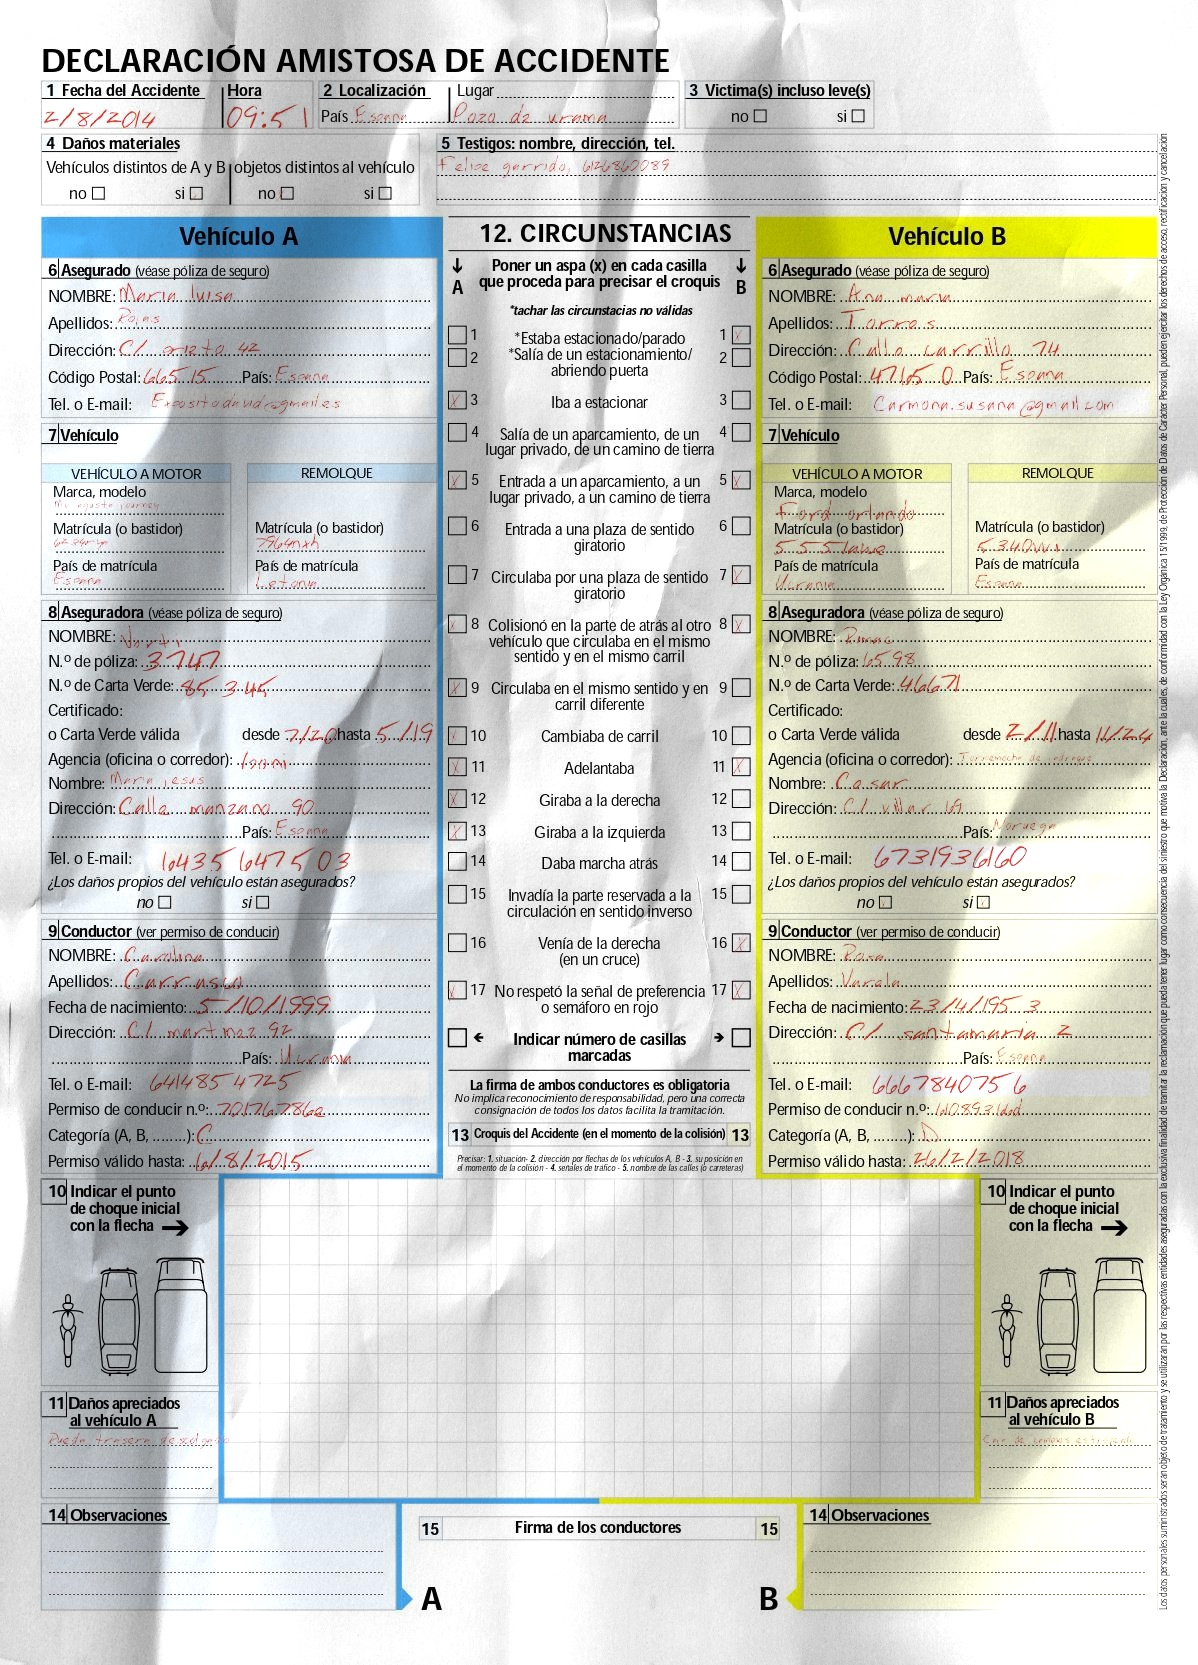 DECLARACIÓN AMISTOSA DE ACCIDENTE
1 Fecha del Accidente Hora 2 Localización Lugar 3 Victima(s) incluso leve(s)
2/8/2014 09:51 País Espana Pozo de urama no si
4 Daños materiales
Vehículos distintos de A y B objetos distintos al vehículo
no si no si
5 Testigos: nombre, dirección, tel.
Felipe garrido, 626860089
Vehículo A
6 Asegurado (véase póliza de seguro)
NOMBRE: Maria luisa
Apellidos: Rojas
Dirección: C/ prieto 42
Código Postal: 66515 País: Espana
Tel. o E-mail: Expositodavid@gmail.es
7 Vehículo
VEHÍCULO A MOTOR REMOLQUE
Marca, modelo
Matrícula (o bastidor) Matrícula (o bastidor)
7964nxh
País de matrícula País de matrícula
Espana Letonia
8 Aseguradora (véase póliza de seguro)
NOMBRE:
N.º de póliza: 3747
N.º de Carta Verde: 85 3 45
Certificado:
o Carta Verde válida desde 7/20 hasta 5/19
Agencia (oficina o corredor):
Nombre: Maria jesus
Dirección: Calle manzana 90
País: Espana
Tel. o E-mail: 6435647503
¿Los daños propios del vehículo están asegurados?
no si
9 Conductor (ver permiso de conducir)
NOMBRE: Carolina
Apellidos: Carrasco
Fecha de nacimiento: 5/10/1999
Dirección: C/ martinez 92
País: Ucrania
Tel. o E-mail: 6414854725
Permiso de conducir n.º:
Categoría (A, B, ........): C
Permiso válido hasta: 6/8/2015
10 Indicar el punto
de choque inicial
con la flecha
11 Daños apreciados
al vehículo A
Rueda trasera descolgada
14 Observaciones
12. CIRCUNSTANCIAS
A Poner un aspa (x) en cada casilla B
que proceda para precisar el croquis
*tachar las circunstacias no válidas
1 *Estaba estacionado/parado 1
2 *Salía de un estacionamiento/ 2
abriendo puerta
3 Iba a estacionar 3
4 Salía de un aparcamiento, de un 4
lugar privado, de un camino de tierra
5 Entrada a un aparcamiento, a un 5
lugar privado, a un camino de tierra
6 Entrada a una plaza de sentido 6
giratorio
7 Circulaba por una plaza de sentido 7
giratorio
8 Colisionó en la parte de atrás al otro 8
vehículo que circulaba en el mismo
sentido y en el mismo carril
9 Circulaba en el mismo sentido y en 9
carril diferente
10 Cambiaba de carril 10
11 Adelantaba 11
12 Giraba a la derecha 12
13 Giraba a la izquierda 13
14 Daba marcha atrás 14
15 Invadía la parte reservada a la 15
circulación en sentido inverso
16 Venía de la derecha 16
(en un cruce)
17 No respetó la señal de preferencia 17
o semáforo en rojo
Indicar número de casillas
marcadas
La firma de ambos conductores es obligatoria
No implica reconocimiento de responsabilidad, pero una correcta
consignación de todos los datos facilita la tramitación.
13 Croquis del Accidente (en el momento de la colisión) 13
Precisar: 1. situación- 2. dirección por flechas de los vehículos A, B - 3. su posición en
el momento de la colisión - 4. señales de tráfico - 5. nombre de las calles (o carreteras)
15 Firma de los conductores 15
A B
Vehículo B
6 Asegurado (véase póliza de seguro)
NOMBRE: Ana maria
Apellidos: Torres
Dirección: Calle carrillo 74
Código Postal: 47165 0 País: Espana
Tel. o E-mail: Carmona.susana@gmail.com
7 Vehículo
VEHÍCULO A MOTOR REMOLQUE
Marca, modelo
Ford orlando
Matrícula (o bastidor) Matrícula (o bastidor)
País de matrícula País de matrícula
Ucrania Espana
8 Aseguradora (véase póliza de seguro)
NOMBRE: Rimac
N.º de póliza: 6598
N.º de Carta Verde: 46671
Certificado:
o Carta Verde válida desde 2/11 hasta 11/24
Agencia (oficina o corredor): Torremocha de jadraque
Nombre: Cesar
Dirección: C/ villar 69
País: Noruega
Tel. o E-mail: 6731936160
¿Los daños propios del vehículo están asegurados?
no si
9 Conductor (ver permiso de conducir)
NOMBRE: Rosa
Apellidos: Varela
Fecha de nacimiento: 23/4/1953
Dirección: C/ santamaria 2
País: Espana
Tel. o E-mail: 6667840756
Permiso de conducir n.º:
Categoría (A, B, ........): D
Permiso válido hasta: 26/2/2018
10 Indicar el punto
de choque inicial
con la flecha
11 Daños apreciados
al vehículo B
14 Observaciones
Los datos personales suministrados seran objeto de tratamiento y se utilizaran por las respectivas entidades aseguradas con la exclusiva finalidad de tramitar la reclamación que pueda tener lugar como consecuencia del siniestro que motiva la Declaración, ante la cuales, de conformidad con la Ley Orgánica 15/1999, de Protección de Datos de Carácter Personal, pueden ejercitar los derechos de acceso, rectificación y cancelación